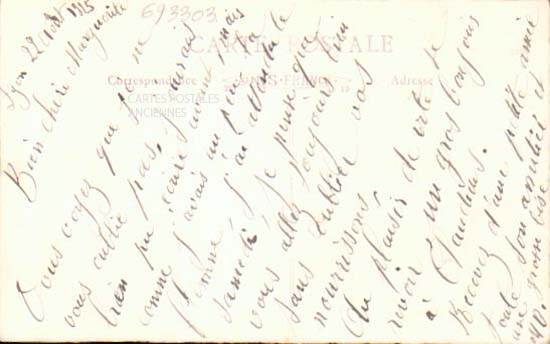 693303
CARTE POSTALE
Correspondance
Adresse
CARTES POSTALES
ANCIENNES
Lyon 22 Août 1915
Bien chère Marguerite
Vous voyez que je ne
vous oublie pas, j'aurais
bien pu écrire avant, mais
comme j'avais un peu la
flemme, j'ai attendu le
samedi, je pense que
vous allez toujours bien
sans oublier vos
nourrissons.
Au plaisir de vite se
revoir un gros bonjour
à Claudius.
Recevez d'une petite amie
toute son amitié et
une grosse bise.